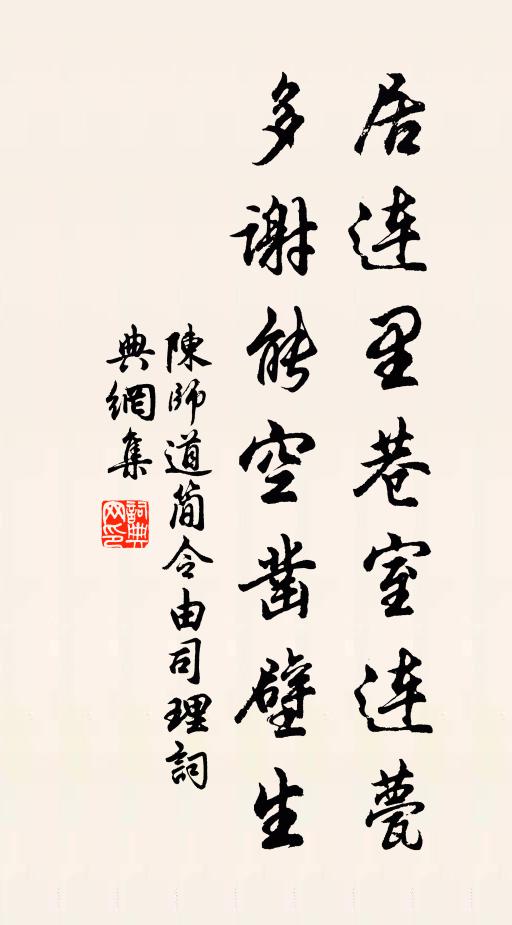 居連里巷室連甍
多謝能空鑿壁生
陳師道簡令由司理詞
典網集
詞典网印